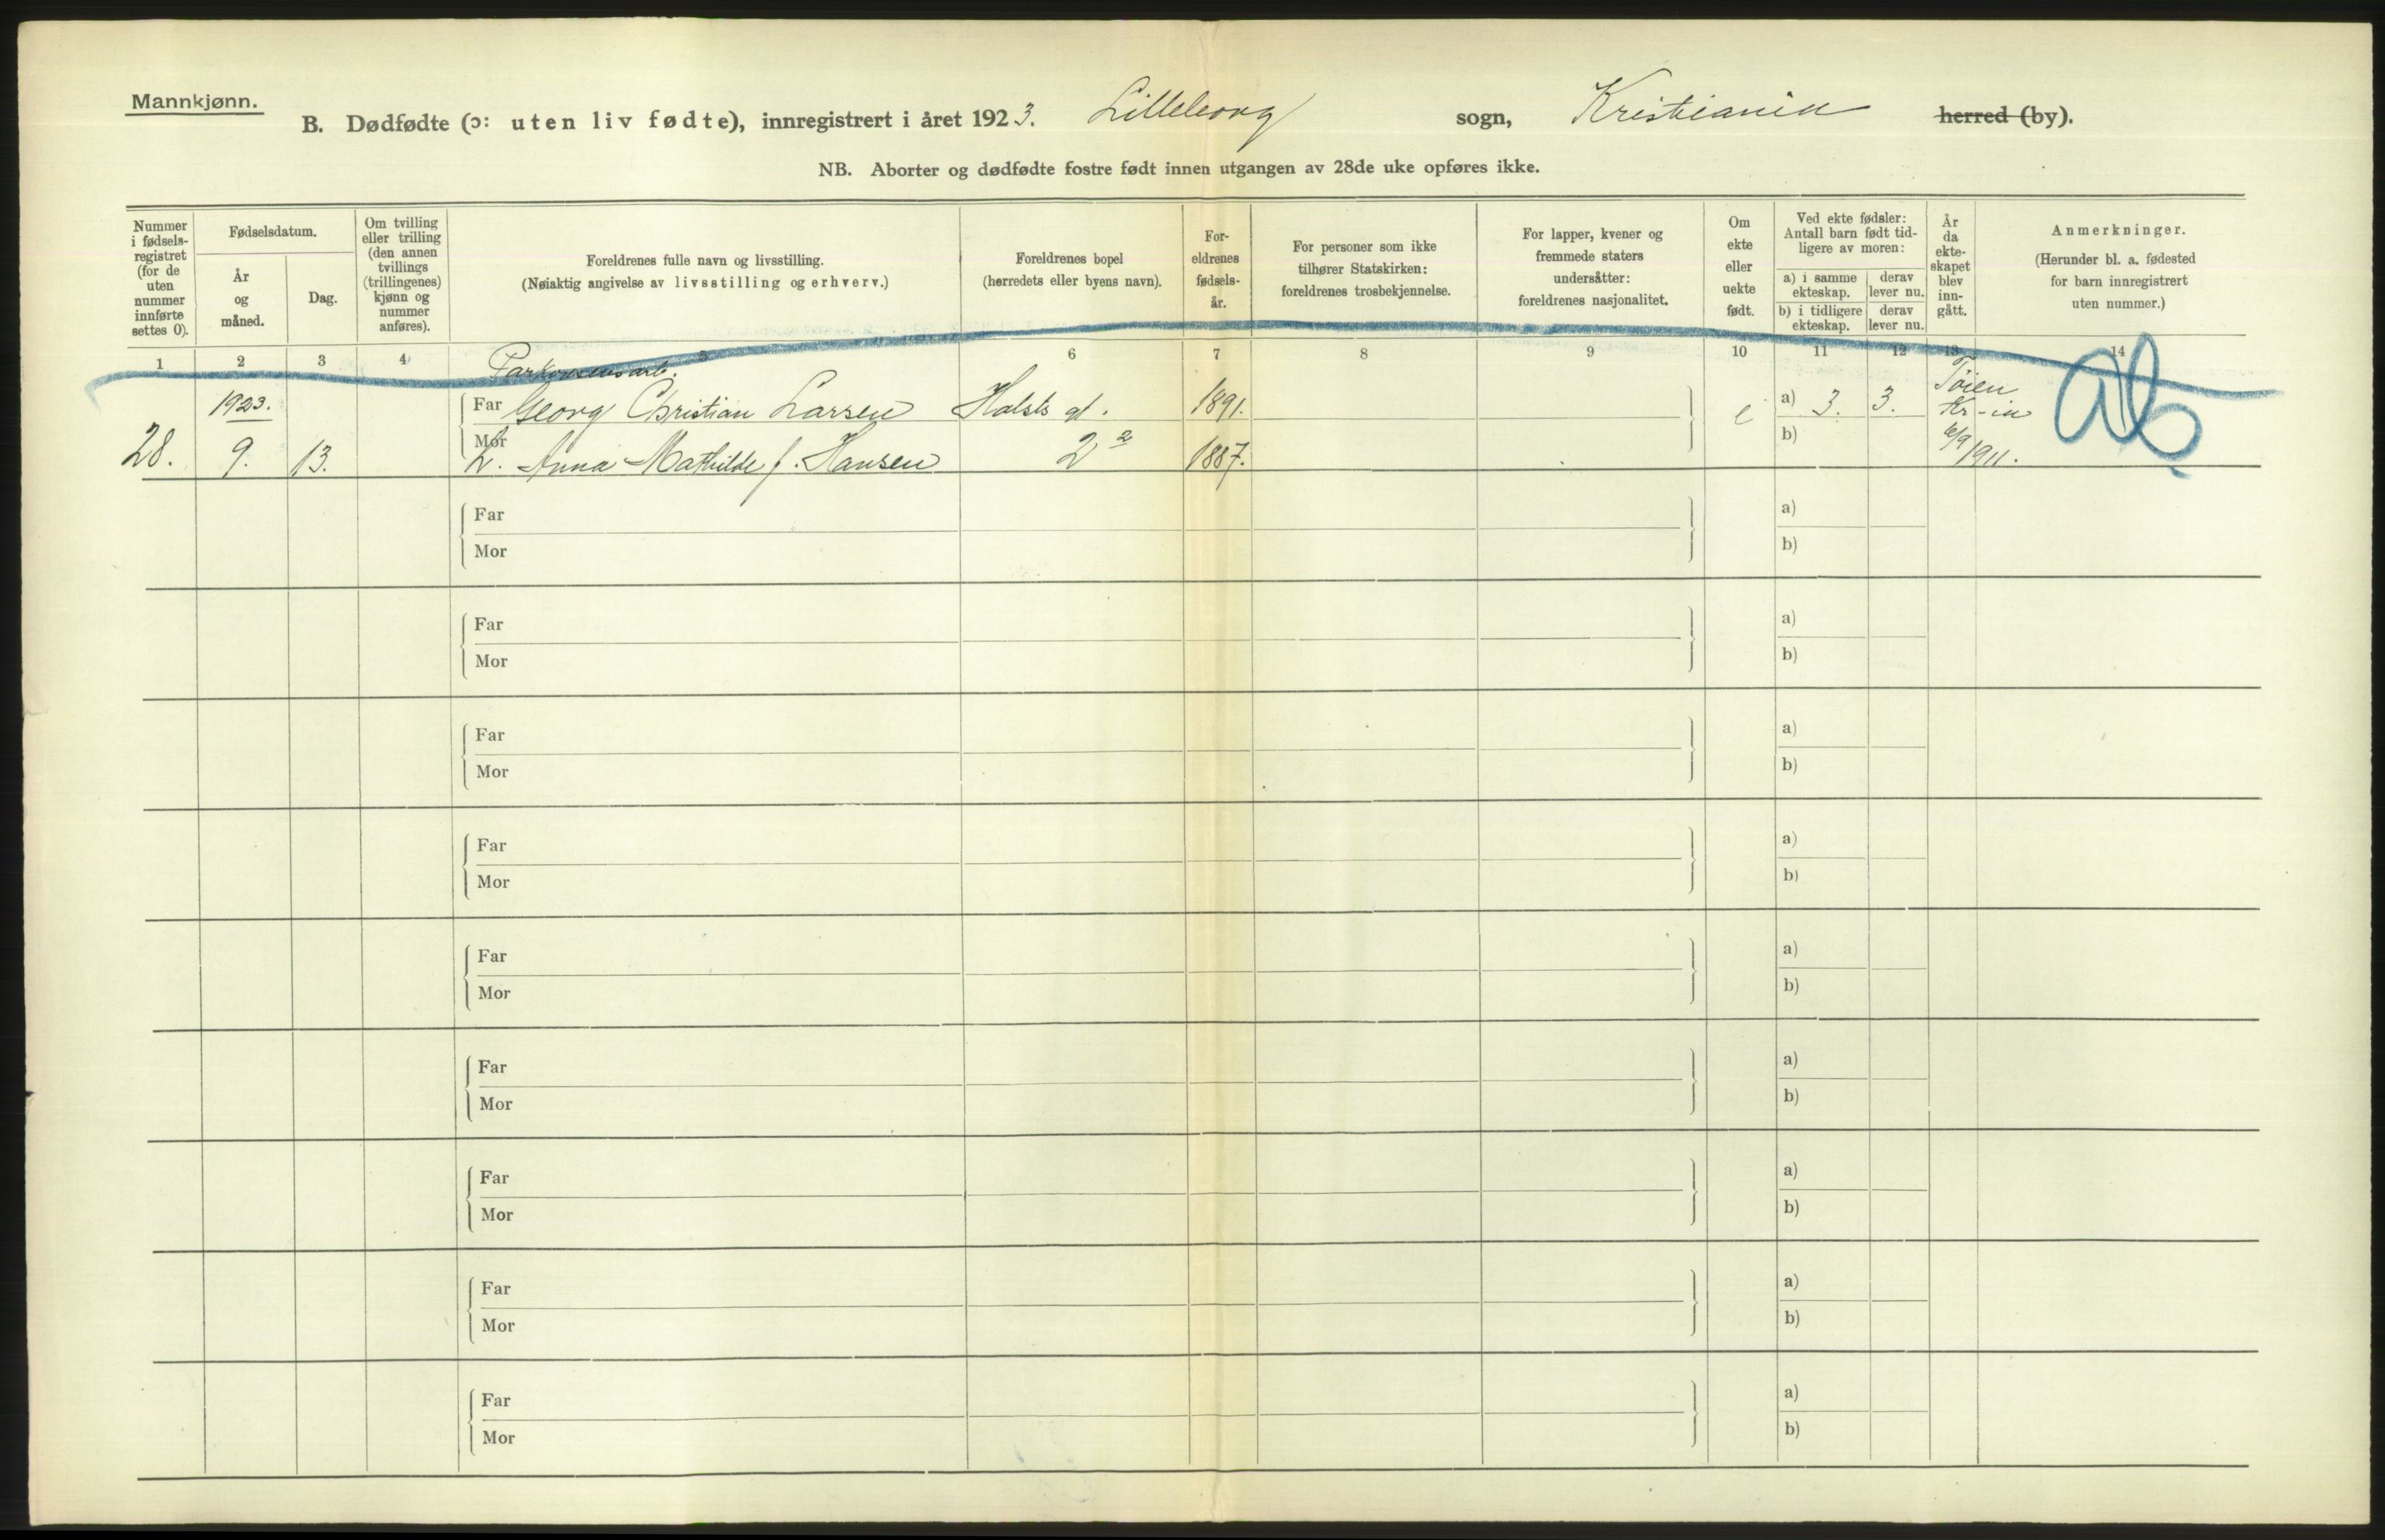 Mannkjønn.
B. Dødfødte (ɔ: uten liv fødte), innregistrert i året 1923. Lilleborg sogn, Kristiania herred (by).
NB. Aborter og dødfødte fostre født innen utgangen av 28de uke opføres ikke.
Nummer
i fødsels-
registret
(for de
uten
nummer
innførte
settes 0).
Fødselsdatum.
År
og
måned.
Dag.
Om tvilling
eller trilling
(den annen
tvillings
(trillingenes)
kjønn og
nummer
anføres).
Foreldrenes fulle navn og livsstilling.
(Nøiaktig angivelse av livsstilling og erhverv.)
Foreldrenes bopel
(herredets eller byens navn).
For-
eldrenes
fødsels-
år.
For personer som ikke
tilhører Statskirken:
foreldrenes trosbekjennelse.
For lapper, kvener og
fremmede staters
undersåtter:
foreldrenes nasjonalitet.
Om
ekte
eller
uekte
født.
Ved ekte fødsler:
Antall barn født tid-
ligere av moren:
a) i samme
ekteskap.
derav
lever nu.
b) i tidligere
ekteskap.
derav
lever nu.
År
da
ekte-
skapet
blev
inn-
gått.
Anmerkninger.
(Herunder bl. a. fødested
for barn innregistrert
uten nummer.)
1 2 3 4 5 6 7 8 9 10 11 12 13 14
1923.
Far Georg Christian Larsen Holsts gt. 1891. e a) 3. 3. Tøien
Kr-ia
28. 9. 13. Mor L. Anna Mathilde f. Hansen 2 2 1887. b) 6/9 1911.
Far a)
Mor b)
Far a)
Mor b)
Far a)
Mor b)
Far a)
Mor b)
Far a)
Mor b)
Far a)
Mor b)
Far a)
Mor b)
Far a)
Mor b)
Far a)
Mor b)